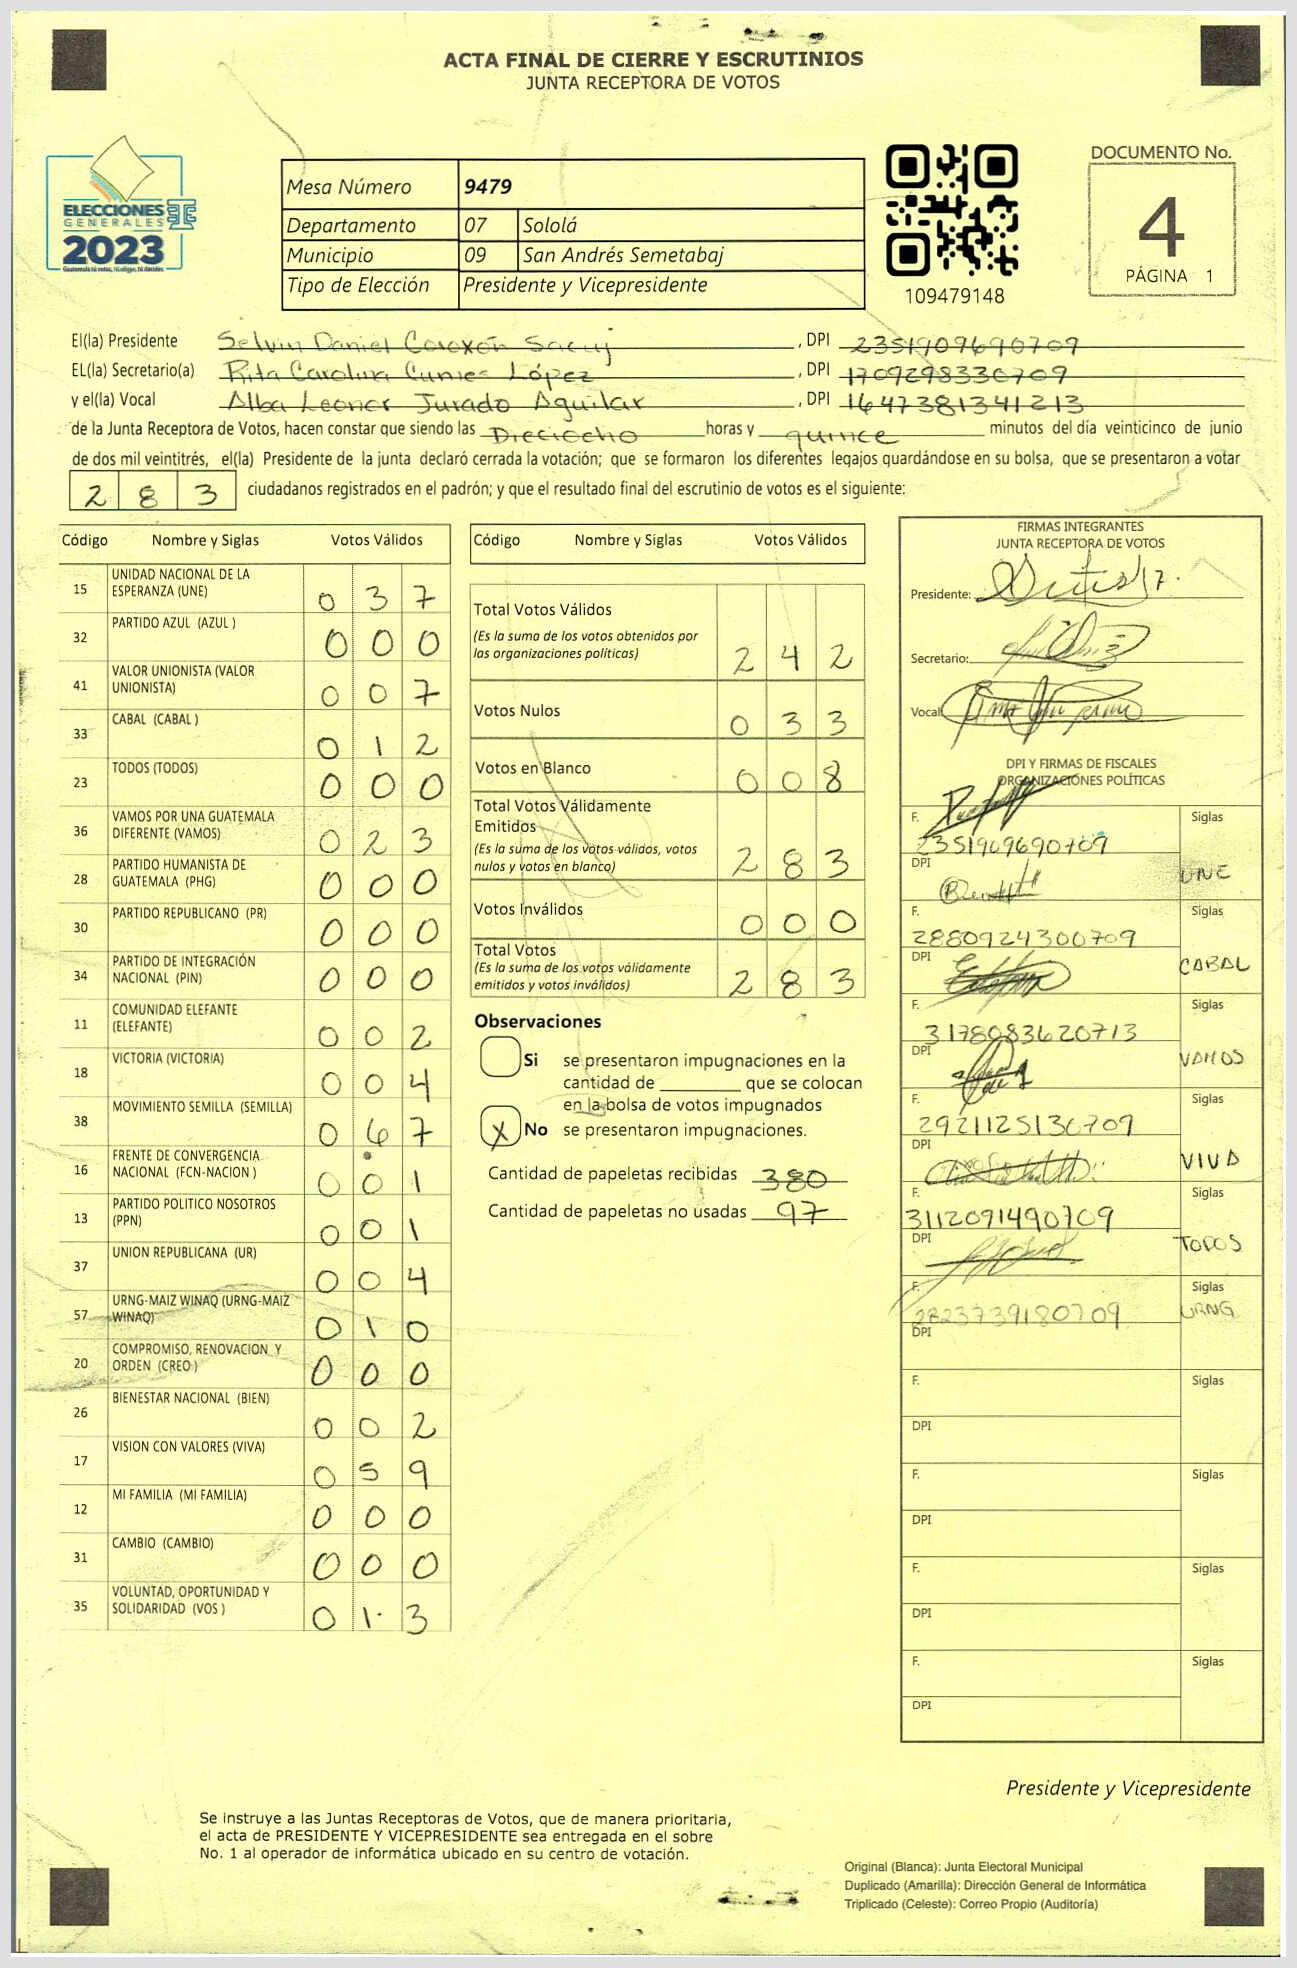 ACTA FINAL DE CIERRE Y ESCRUTINIOS
JUNTA RECEPTORA DE VOTOS
ELECCIONES
GENERALES
2023
Guatemala tú votas, tú eliges, tú decides
Mesa Número 9479
Departamento 07 Sololá
Municipio 09 San Andrés Semetabaj
Tipo de Elección Presidente y Vicepresidente
109479148
DOCUMENTO No.
4
PÁGINA 1
El(la) Presidente Selvin Daniel , DPI 2351909690709
EL(la) Secretario(a) Rita Carolina López , DPI 1709298330709
y el(la) Vocal Alba Leonor Jurado Aguilar , DPI 1647381341213
de la Junta Receptora de Votos, hacen constar que siendo las Dieciocho horas y quince minutos del día veinticinco de junio
de dos mil veintitrés, el(la) Presidente de la junta declaró cerrada la votación; que se formaron los diferentes legajos guardándose en su bolsa, que se presentaron a votar
283 ciudadanos registrados en el padrón; y que el resultado final del escrutinio de votos es el siguiente:
Código Nombre y Siglas Votos Válidos
15 UNIDAD NACIONAL DE LA
ESPERANZA (UNE) 0 3 7
32 PARTIDO AZUL (AZUL ) 0 0 0
41 VALOR UNIONISTA (VALOR
UNIONISTA) 0 0 7
33 CABAL (CABAL ) 0 1 2
23 TODOS (TODOS) 0 0 0
36 VAMOS POR UNA GUATEMALA
DIFERENTE (VAMOS) 0 2 3
28 PARTIDO HUMANISTA DE
GUATEMALA (PHG) 0 0 0
30 PARTIDO REPUBLICANO (PR) 0 0 0
34 PARTIDO DE INTEGRACIÓN
NACIONAL (PIN) 0 0 0
11 COMUNIDAD ELEFANTE
(ELEFANTE) 0 0 2
18 VICTORIA (VICTORIA) 0 0 4
38 MOVIMIENTO SEMILLA (SEMILLA) 0 6 7
16 FRENTE DE CONVERGENCIA
NACIONAL (FCN-NACION ) 0 0 1
13 PARTIDO POLITICO NOSOTROS
(PPN) 0 0 1
37 UNION REPUBLICANA (UR) 0 0 4
57 URNG-MAIZ WINAQ (URNG-MAIZ
WINAQ) 0 1 0
20 COMPROMISO, RENOVACION Y
ORDEN (CREO ) 0 0 0
26 BIENESTAR NACIONAL (BIEN) 0 0 2
17 VISION CON VALORES (VIVA) 0 5 9
12 MI FAMILIA (MI FAMILIA) 0 0 0
31 CAMBIO (CAMBIO) 0 0 0
35 VOLUNTAD, OPORTUNIDAD Y
SOLIDARIDAD (VOS ) 0 1 3
Código Nombre y Siglas Votos Válidos
Total Votos Válidos
(Es la suma de los votos obtenidos por
las organizaciones políticas) 2 4 2
Votos Nulos 0 3 3
Votos en Blanco 0 0 8
Total Votos Válidamente
Emitidos
(Es la suma de los votos válidos, votos
nulos y votos en blanco) 2 8 3
Votos Inválidos 0 0 0
Total Votos
(Es la suma de los votos válidamente
emitidos y votos inválidos) 2 8 3
Observaciones
Si se presentaron impugnaciones en la
cantidad de ________ que se colocan
en la bolsa de votos impugnados
X No se presentaron impugnaciones.
Cantidad de papeletas recibidas 380
Cantidad de papeletas no usadas 97
FIRMAS INTEGRANTES
JUNTA RECEPTORA DE VOTOS
Presidente:
Secretario:
Vocal
DPI Y FIRMAS DE FISCALES
ORGANIZACIONES POLÍTICAS
F. Siglas
2351909690709
DPI UNE
F. Siglas
2880924300709
DPI CABAL
F. Siglas
3178083620713
DPI VAMOS
F. Siglas
2921125130709
DPI VIVA
F. Siglas
3112091490709
DPI TODOS
F. Siglas
2823739180709 URNG
DPI
F. Siglas
DPI
F. Siglas
DPI
F. Siglas
DPI
F. Siglas
DPI
Presidente y Vicepresidente
Se instruye a las Juntas Receptoras de Votos, que de manera prioritaria,
el acta de PRESIDENTE Y VICEPRESIDENTE sea entregada en el sobre
No. 1 al operador de informática ubicado en su centro de votación.
Original (Blanca): Junta Electoral Municipal
Duplicado (Amarilla): Dirección General de Informática
Triplicado (Celeste): Correo Propio (Auditoría)